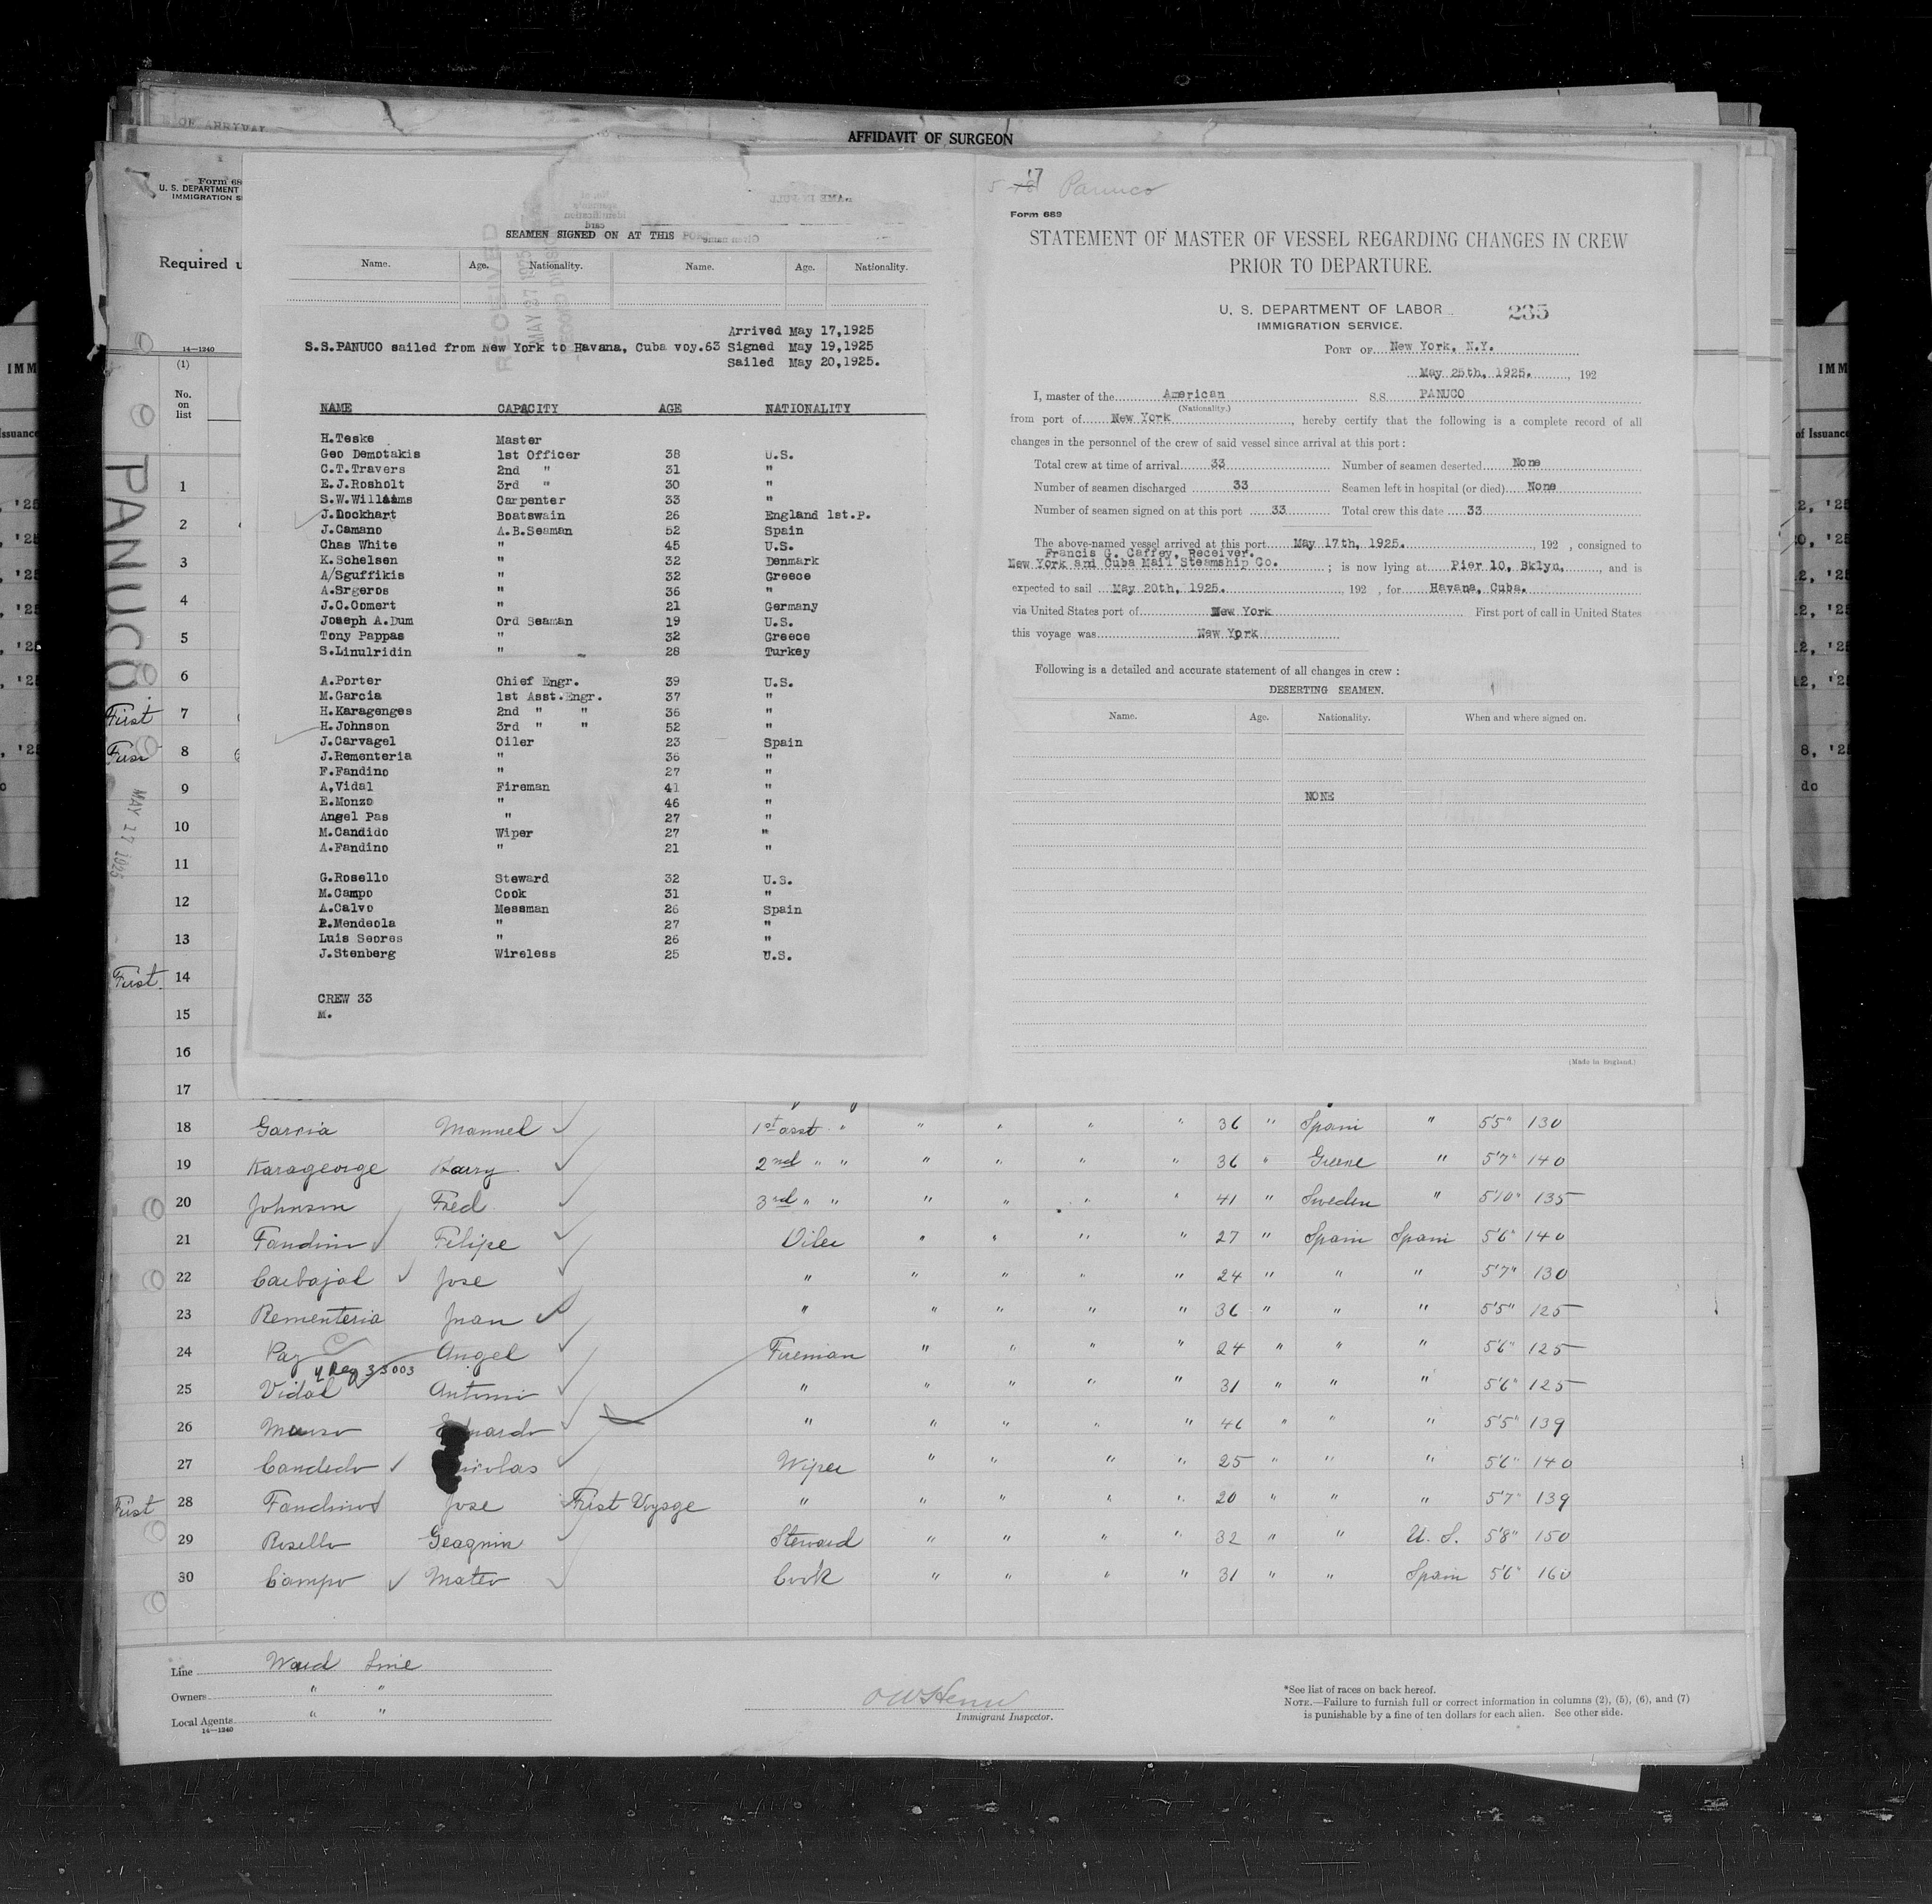 OF ARRIVAL
AFFIDAVIT OF SURGEON
Form 68
U. S. DEPARTMENT
IMMIGRATION S
Required u
14—1240
(1)
No.
on
list
PANUCO
MAY 17 1925
SEAMEN SIGNED ON AT THIS PORT
Name. Age. Nationality. Name. Age. Nationality.
RECEIVED
MAY 27 1925
Arrived May 17,1925
S.S.PANUCO sailed from New York to Havana, Cuba voy.63 Signed May 19,1925
Sailed May 20,1925.
NAME CAPACITY AGE NATIONALITY
H.Teske Master
Geo Demotakis 1st Officer 38 U.S.
C.T.Travers 2nd " 31 "
E.J.Rosholt 3rd " 30 "
S.W.Williams Carpenter 33 "
J.Lockhart Boatswain 26 England 1st.P.
J.Camano A.B.Seaman 52 Spain
Chas White " 45 U.S.
K.Schelsen " 32 Denmark
A/Sguffikis " 32 Greece
A.Srgeros " 36 "
J.C.Comert " 21 Germany
Joseph A.Dum Ord Seaman 19 U.S.
Tony Pappas " 32 Greece
S.Linulridin " 28 Turkey
A.Porter Chief Engr. 39 U.S.
M.Garcia 1st Asst.Engr. 37 "
H.Karagenges 2nd " " 36 "
H.Johnson 3rd " " 52 "
J.Carvagel Oiler 23 Spain
J.Rementeria " 36 "
F.Fandino " 27 "
A,Vidal Fireman 41 "
E.Monzo " 46 "
Angel Pas " 27 "
M.Candido Wiper 27 "
A.Fandino " 21 "
G.Rosello Steward 32 U.S.
M.Campo Cook 31 "
A.Calvo Messman 26 Spain
P.Mendeola " 27 "
Luis Seores " 26 "
J.Stenberg Wireless 25 U.S.
CREW 33
M.
Panuco
Form 689
STATEMENT OF MASTER OF VESSEL REGARDING CHANGES IN CREW
PRIOR TO DEPARTURE.
U. S. DEPARTMENT OF LABOR 235
IMMIGRATION SERVICE.
PORT OF New York, N.Y.
May 25th, 1925. , 192
I, master of the American S.S. PANUCO
(Nationality.)
from port of New York , hereby certify that the following is a complete record of all
changes in the personnel of the crew of said vessel since arrival at this port :
Total crew at time of arrival 33 Number of seamen deserted None
Number of seamen discharged 33 Seamen left in hospital (or died) None
Number of seamen signed on at this port 33 Total crew this date 33
The above-named vessel arrived at this port May 17th, 1925. , 192 , consigned to
Francis G. Caffey, Receiver.
New York and Cuba Mail Steamship Co. ; is now lying at Pier 10, Bklyn, , and is
expected to sail May 20th, 1925. , 192 , for Havana, Cuba.
via United States port of New York First port of call in United States
this voyage was New York
Following is a detailed and accurate statement of all changes in crew :
DESERTING SEAMEN.
Name. Age. Nationality. When and where signed on.
NONE
(Made in England.)
1
2
3
4
5
6
First 7
First 8
9
10
11
12
13
First 14
15
16
17
18 Garcia Manuel 1st asst " " " " " 36 " Spain " 5'5" 130
19 Karageorge Harry 2nd " " " " " " 36 " Greece " 5'7" 140
20 Johnson Fred 3rd " " " " " " 41 " Sweden " 5'10" 135
21 Fandino Felipe Oiler " " " " 27 " Spain Spain 5'6" 140
22 Carbajal Jose " " " " " 24 " " " 5'7" 130
23 Rementeria Juan " " " " " 36 " " " 5'5" 125
24 Paz Angel Fireman " " " " 24 " " " 5'6" 125
33003
25 Vidal Antonio " " " " " 31 " " " 5'6" 125
26 Eduardo " " " " " 46 " " " 5'5" 139
27 Candido Nicolas Wiper " " " " 25 " " " 5'6" 140
First 28 Fandino Jose First Voyage " " " " " 20 " " " 5'7" 139
29 Rosello Steward " " " " 32 " " U. S. 5'8" 150
30 Campo Mateo Cook " " " " 31 " " Spain 5'6" 160
Line Ward Line
Owners " "
Local Agents " "
14—1240
Immigrant Inspector.
*See list of races on back hereof.
NOTE.—Failure to furnish full or correct information in columns (2), (5), (6), and (7)
is punishable by a fine of ten dollars for each alien. See other side.
IMM
of Issuance
do